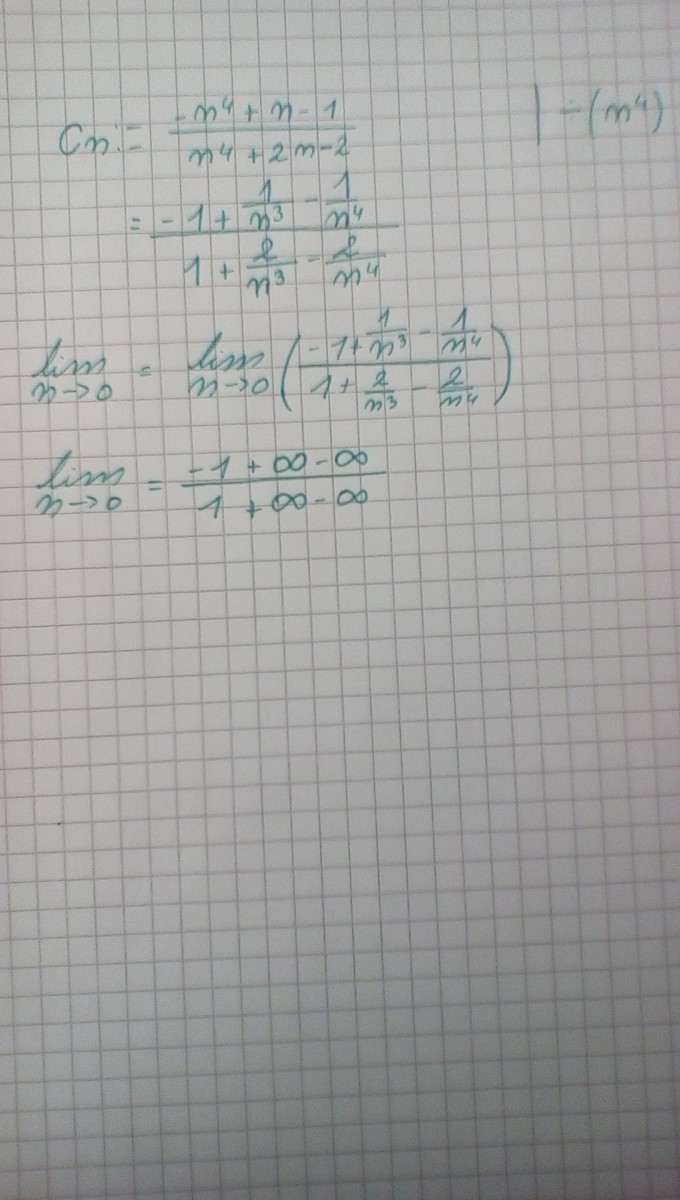 Cn := (-n⁴ + n - 1)/(n⁴ + 2n - 2) | ÷(n⁴)
= (-1 + 1/n³ - 1/n⁴)/(1 + 2/n³ - 2/n⁴)
lim n→0 = lim n→0 ((-1 + 1/n³ - 1/n⁴)/(1 + 2/n³ - 2/n⁴))
lim n→0 = (-1 + ∞ - ∞)/(1 + ∞ - ∞)